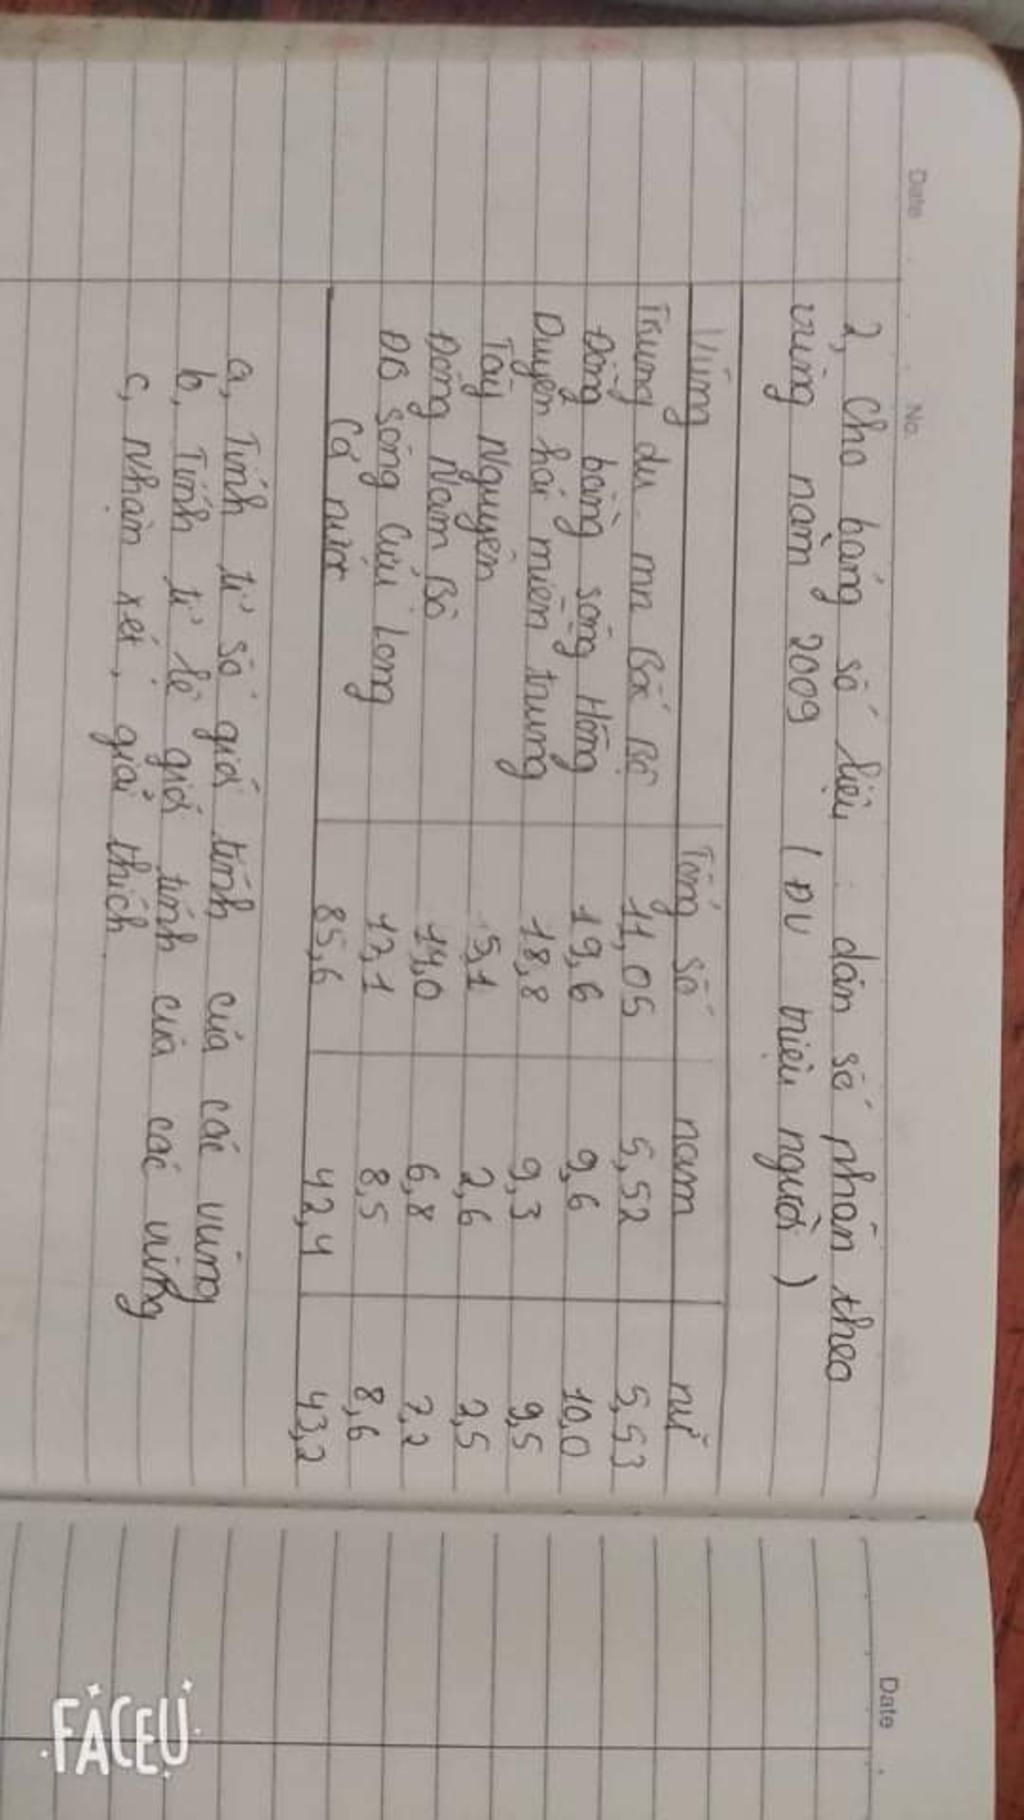 Date No.
2, Cho bảng số liệu dân số phân theo
vùng năm 2009 (ĐV triệu người)
Vùng Tổng số nam nữ
Trung du mn Bắc Bộ 11,05 5,52 5,53
Đồng bằng sông Hồng 19,6 9,6 10,0
Duyên hải miền trung 18,8 9,3 9,5
Tây Nguyên 5,1 2,6 2,5
Đông Nam Bộ 14,0 6,8 7,2
ĐB sông Cửu Long 17,1 8,5 8,6
Cả nước 85,6 42,4 43,2
a, Tính tỉ số giới tính của các vùng
b, Tính tỉ lệ giới tính của các vùng
c, Nhận xét, giải thích.
Date
FACEU